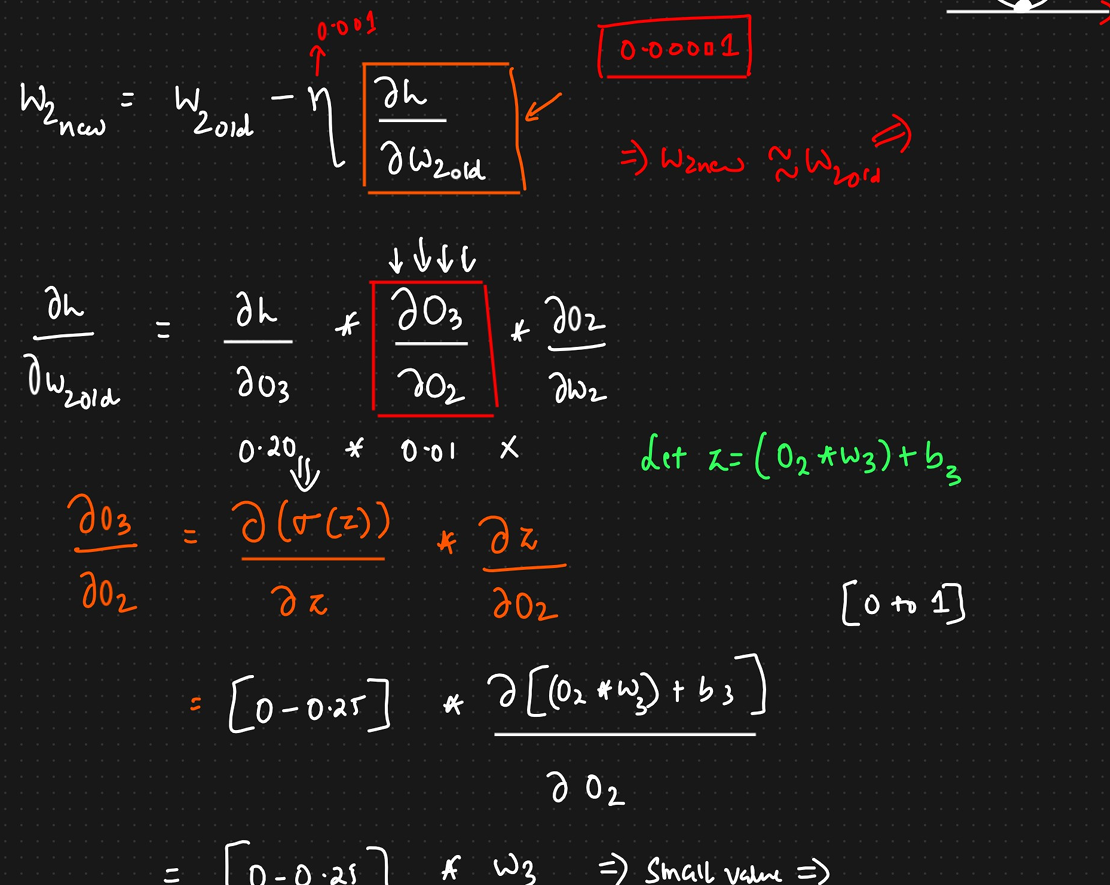 0.001
0.00001
W₂new = W₂old - η ∂h/∂W₂old
⇒ W₂new ≈ W₂old ⇒
↓ ↓ ↓ ↓
∂h/∂W₂old = ∂h/∂O₃ * ∂O₃/∂O₂ * ∂O₂/∂W₂
0.20 * 0.01 x
Let z = (O₂ * W₃) + b₃
∂O₃/∂O₂ = ∂(σ(z))/∂z * ∂z/∂O₂
[0 to 1]
= [0 - 0.25] * ∂[(O₂ * W₃) + b₃]/∂O₂
= [0 - 0.25] * W₃ ⇒ Small value ⇒